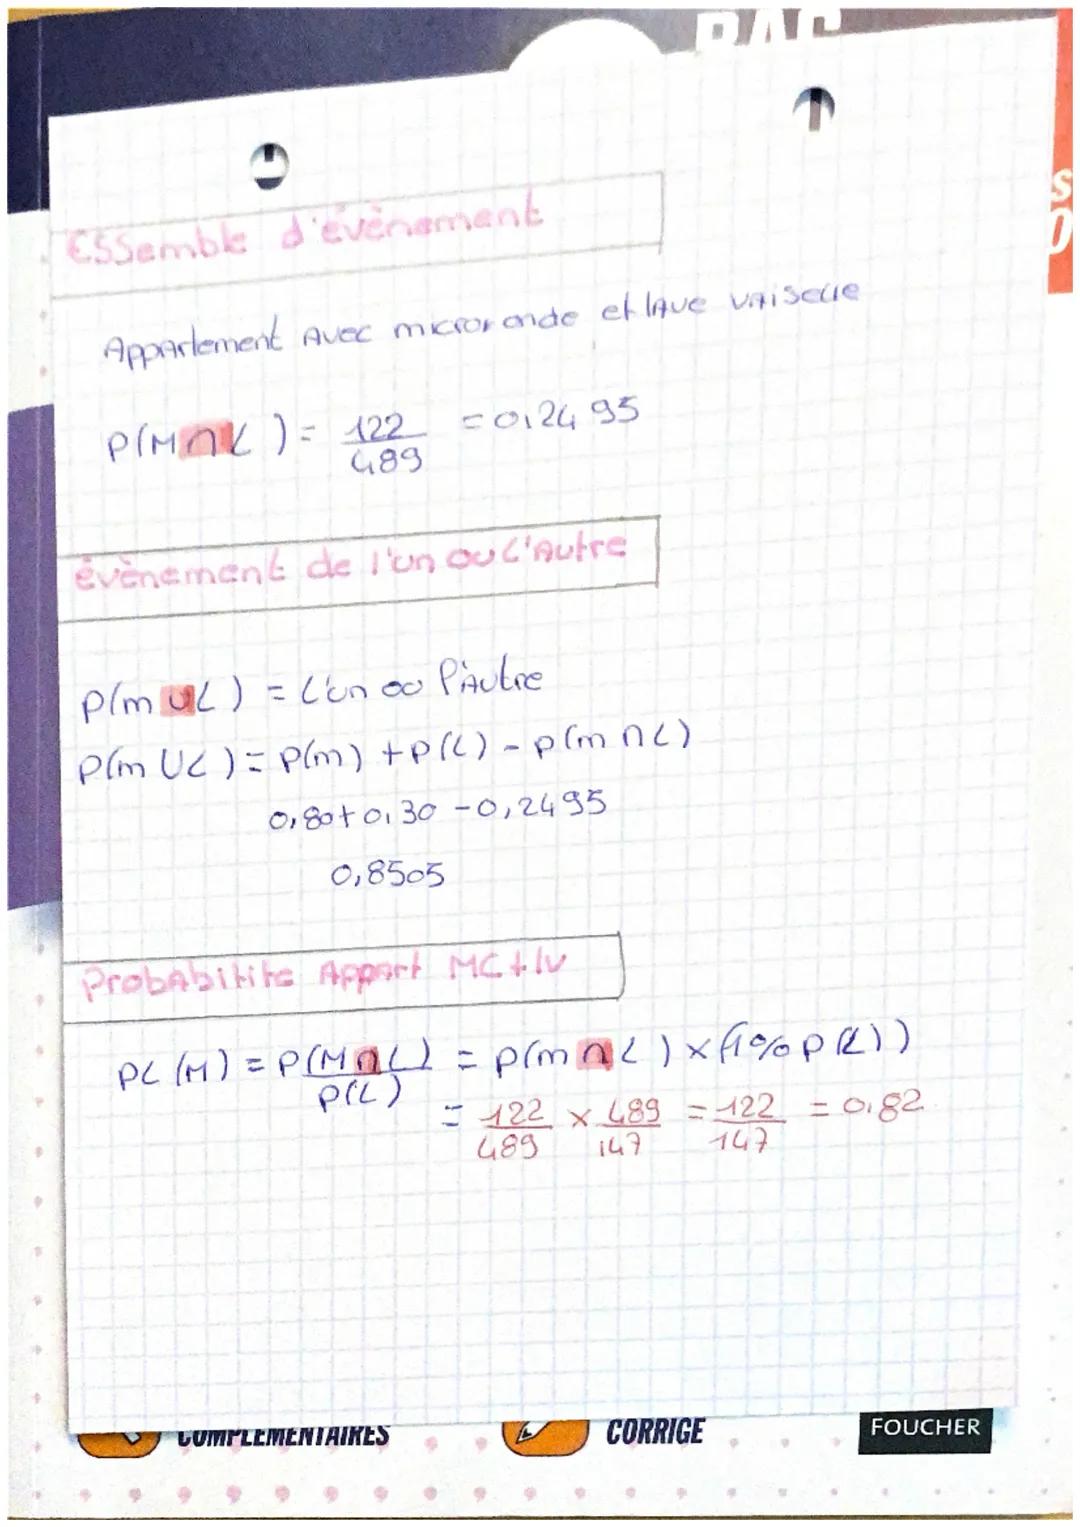 BAC
S
0
ESSemble d'évènement
Appartement Avec micror onde et lAve vAiselle
P(M∩L) = 122/489 = 0,24 95
évènement de l'un ou l'Autre
P(m∪L) = l'un ou l'Autre
P(m∪L) = P(m) + P(L) - P(m∩L)
0,80+0,30 -0,2495
0,8505
ProbAbilite Appart MC+lv
PL (M) = P(M∩L)/P(L) = P(m∩L) x (1% P(L))
= 122/489 x 489/147 = 122/147 = 0,82
COMPLÉMENTAIRES
CORRIGÉ
FOUCHER